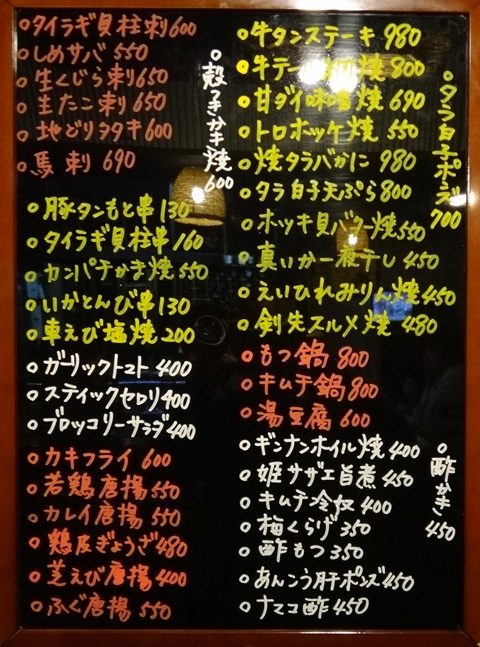 ○タイラギ貝柱刺600
○しめサバ 550
○生くじら刺650
○生たこ刺 650
○地どりタタキ600
○馬刺 690
○殻つきかき焼600
○豚タンもと串130
○タイラギ貝柱串160
○カンパチかま焼550
○いかとんび串130
○車えび塩焼200
○ガーリックトマト 400
○スティックセロリ400
○ブロッコリーサラダ400
○カキフライ 600
○若鶏唐揚550
○カレイ唐揚 550
○鶏皮ぎょうざ480
○芝えび唐揚400
○ふぐ唐揚 550
○牛タンステーキ 980
○牛テール 焼 800
○甘ダイの味噌焼 690
○トロホッケ焼 550
○焼タラバがに 980
○タラ白子天ぷら800
○ホッキ貝バター焼550
○真いか一夜干し 450
○えいひれみりん焼450
○剣先スルメ焼 480
○タラ白子ポンズ700
○もつ鍋 800
○キムチ鍋800
○湯豆腐 600
○ギンナンホイル焼400
○姫サザエ旨煮 450
○キムチ冷奴 400
○梅くらげ 350
○酢もつ 350
○あんこう肝ポンズ450
○ナマコ酢 450
○酢かき450